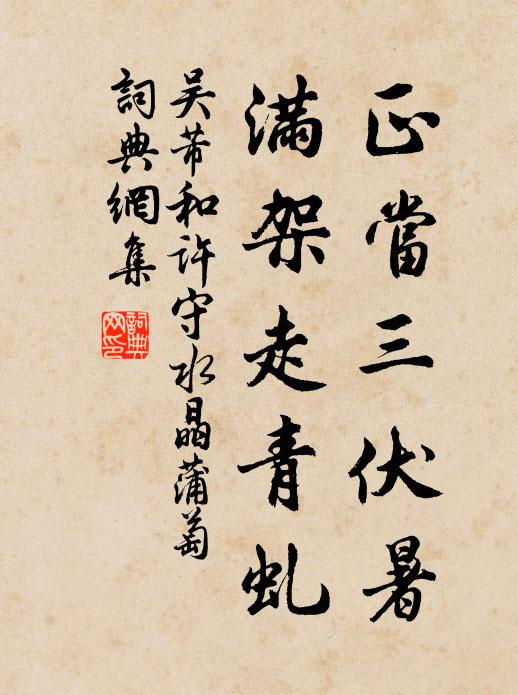 正當三伏暑
滿架走青虬
吴芾和許守水晶蒲萄
詞典網集
詞典網印